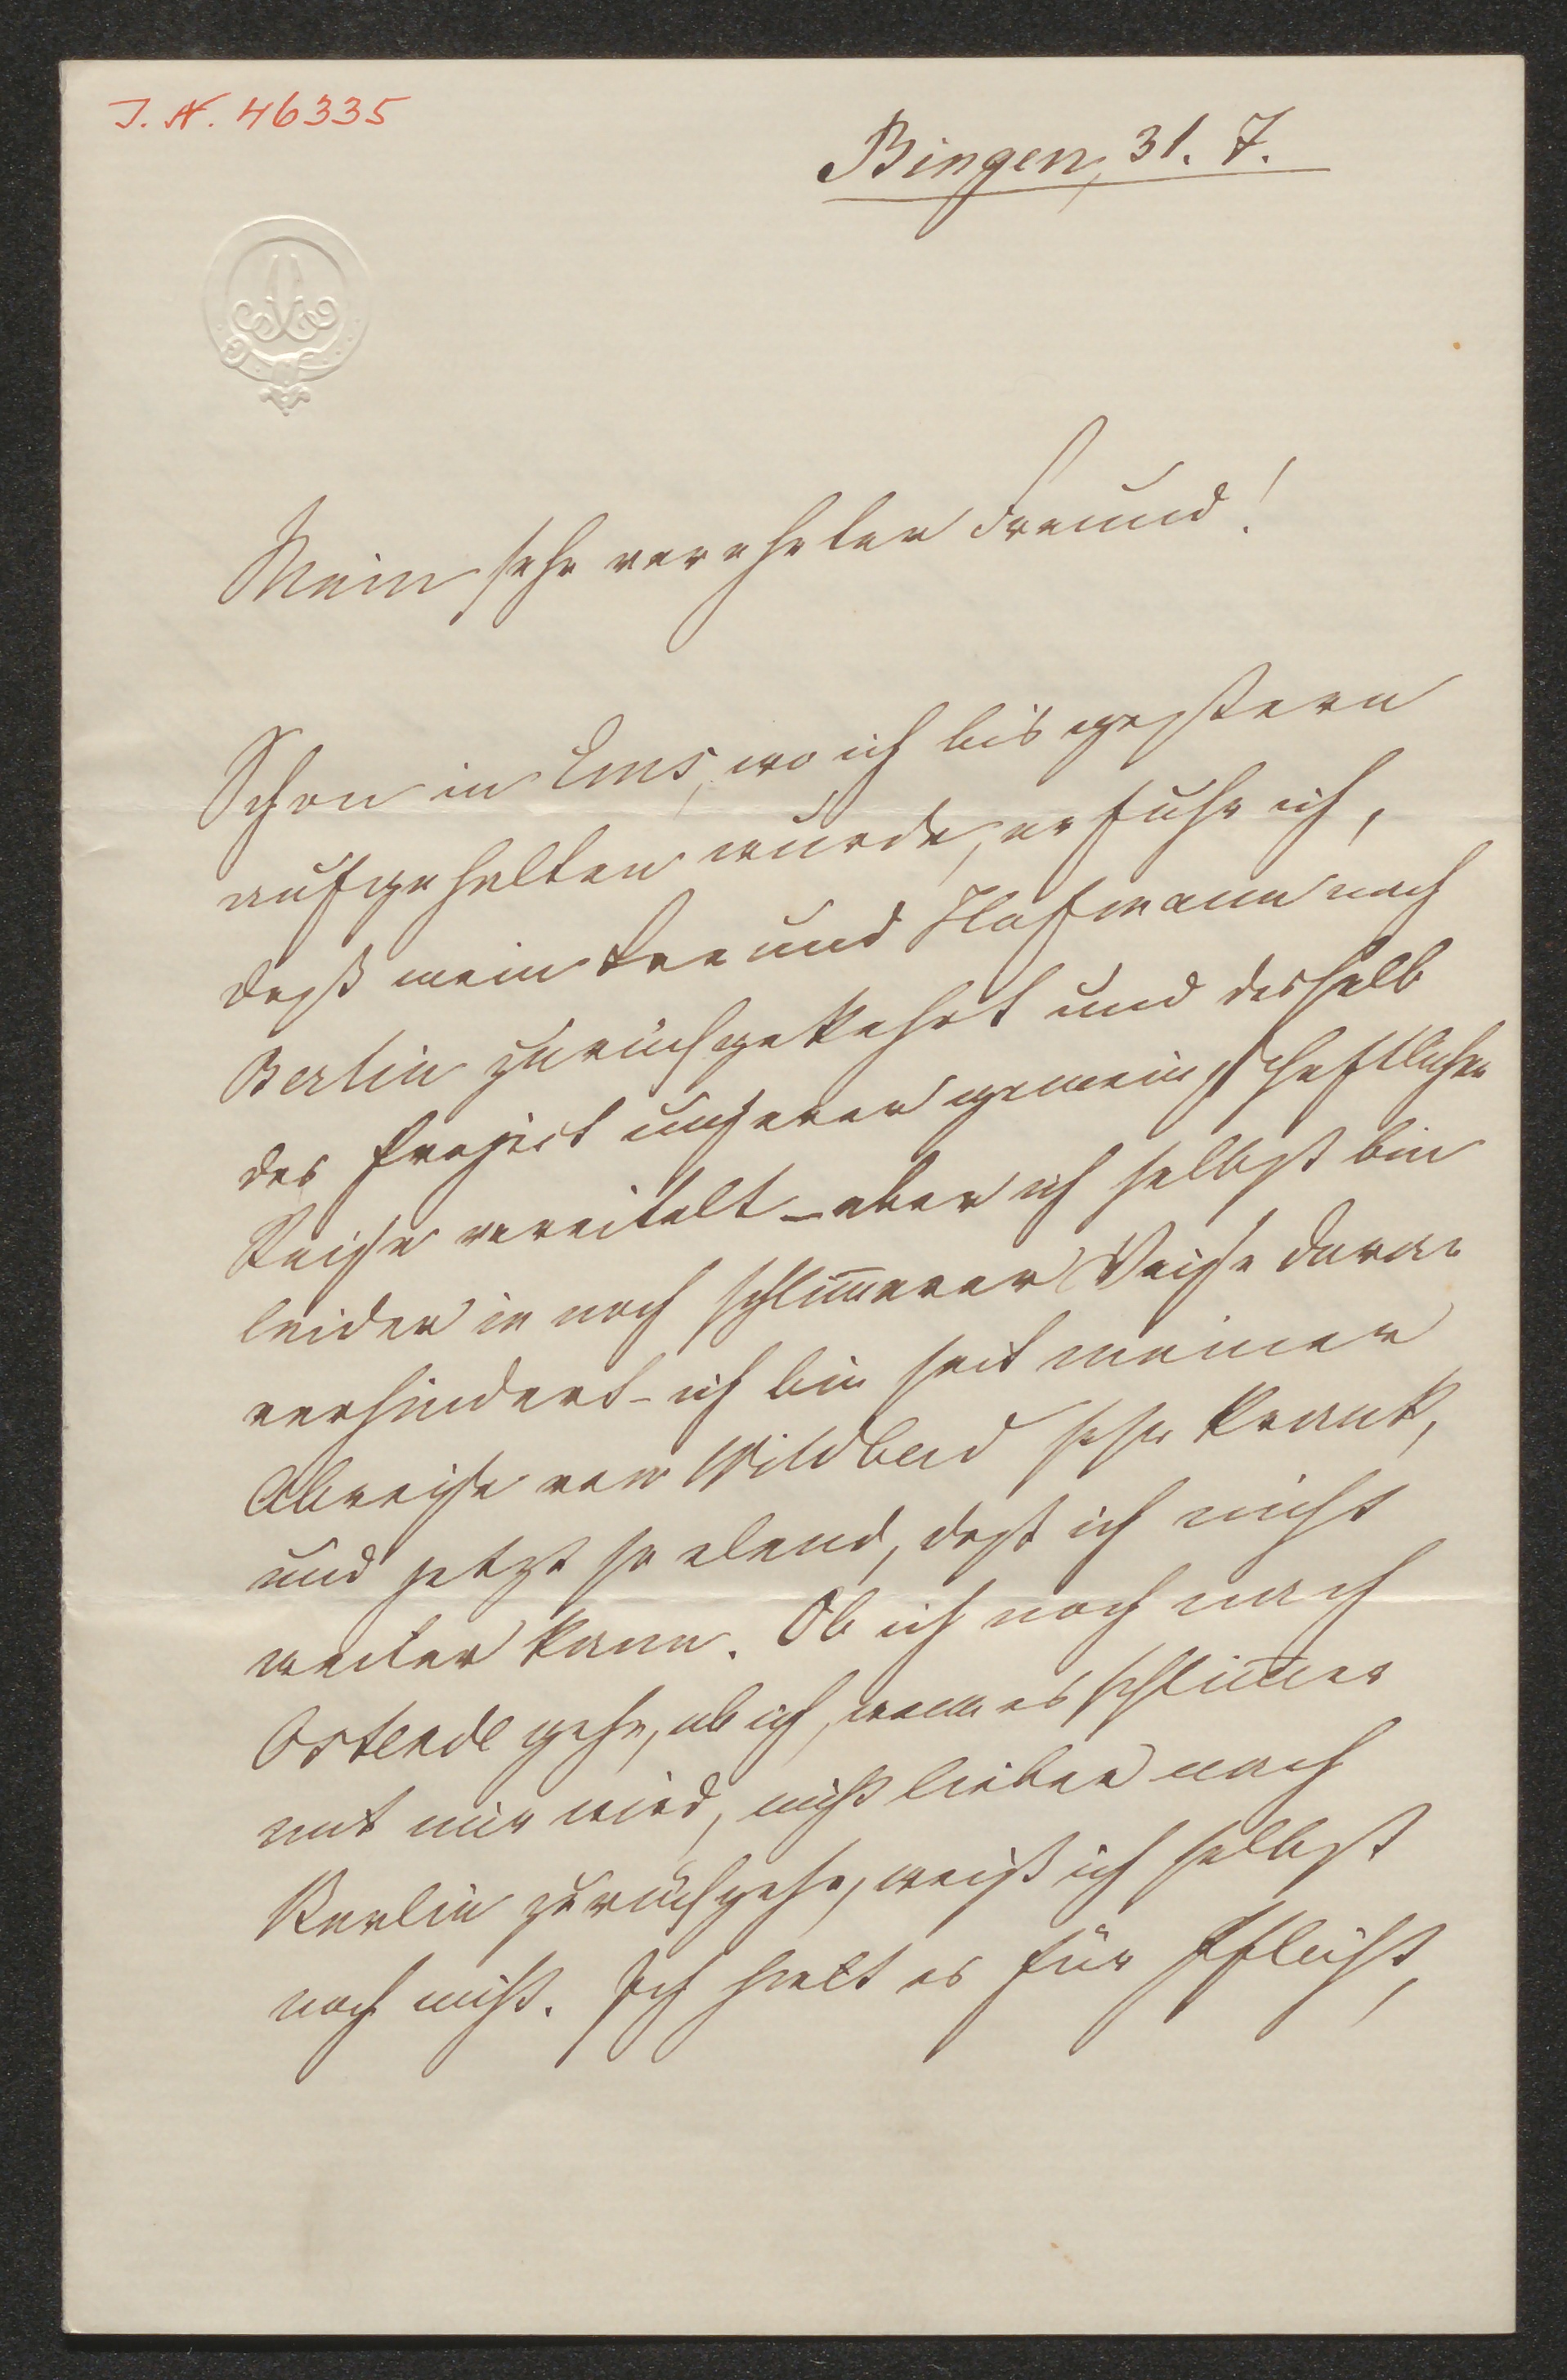 J. N. 46335
Bingen, 31. 7.
Mein sehr verehrter Freund!
Schon in Ems, wo ich bis gestern
aufgehalten wurde, erfuhr ich,
daß mein Freund Hofmann nach
Berlin zurückgekehrt und deshalb
das Project unserer gemeinschaftlichen
Reise vereitelt – aber ich selbst bin
leider in noch schlim̅erer Weise daran
verhindert – ich bin seit meiner
Abreise von Wildbad sehr krank,
und jetzt so elend, daß ich nicht
weiter kann. Ob ich noch nach
Ostende gehe, ob ich, wenn es schlim̅er
mit mir wird, nicht lieber nach
Berlin zurückgehe, weiß ich selbst
noch nicht. Ich hielt es für Pflicht,